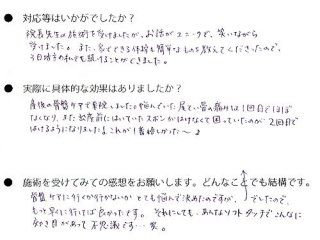 ● 対応等はいかがでしたか？
院長先生の施術を受けましたが、お話がユニークで、笑いながら
受けました。また、家でできる体操も簡単なものを教えてくださったので、
3日坊主の私でも続けることができました。
● 実際に具体的な効果はありましたか？
産後の骨盤ケアで来院しました。悩んでいた尾てい骨の痛みは1回目でほぼ
なくなり、また妊産前にはいていたズボンがはけなくて困っていたのが2回目で
はけるようになりました！これが1番嬉しかった～♪
● 施術を受けてみての感想をお願いします。どんなことでも結構です。
骨盤ケアに行くか行かないか とても悩んで決めたのですが、でしたので、
もっと早くに行けば良かったです。それにしても、あんなソフトタッチでこんなに
効き目があって不思議です…笑。